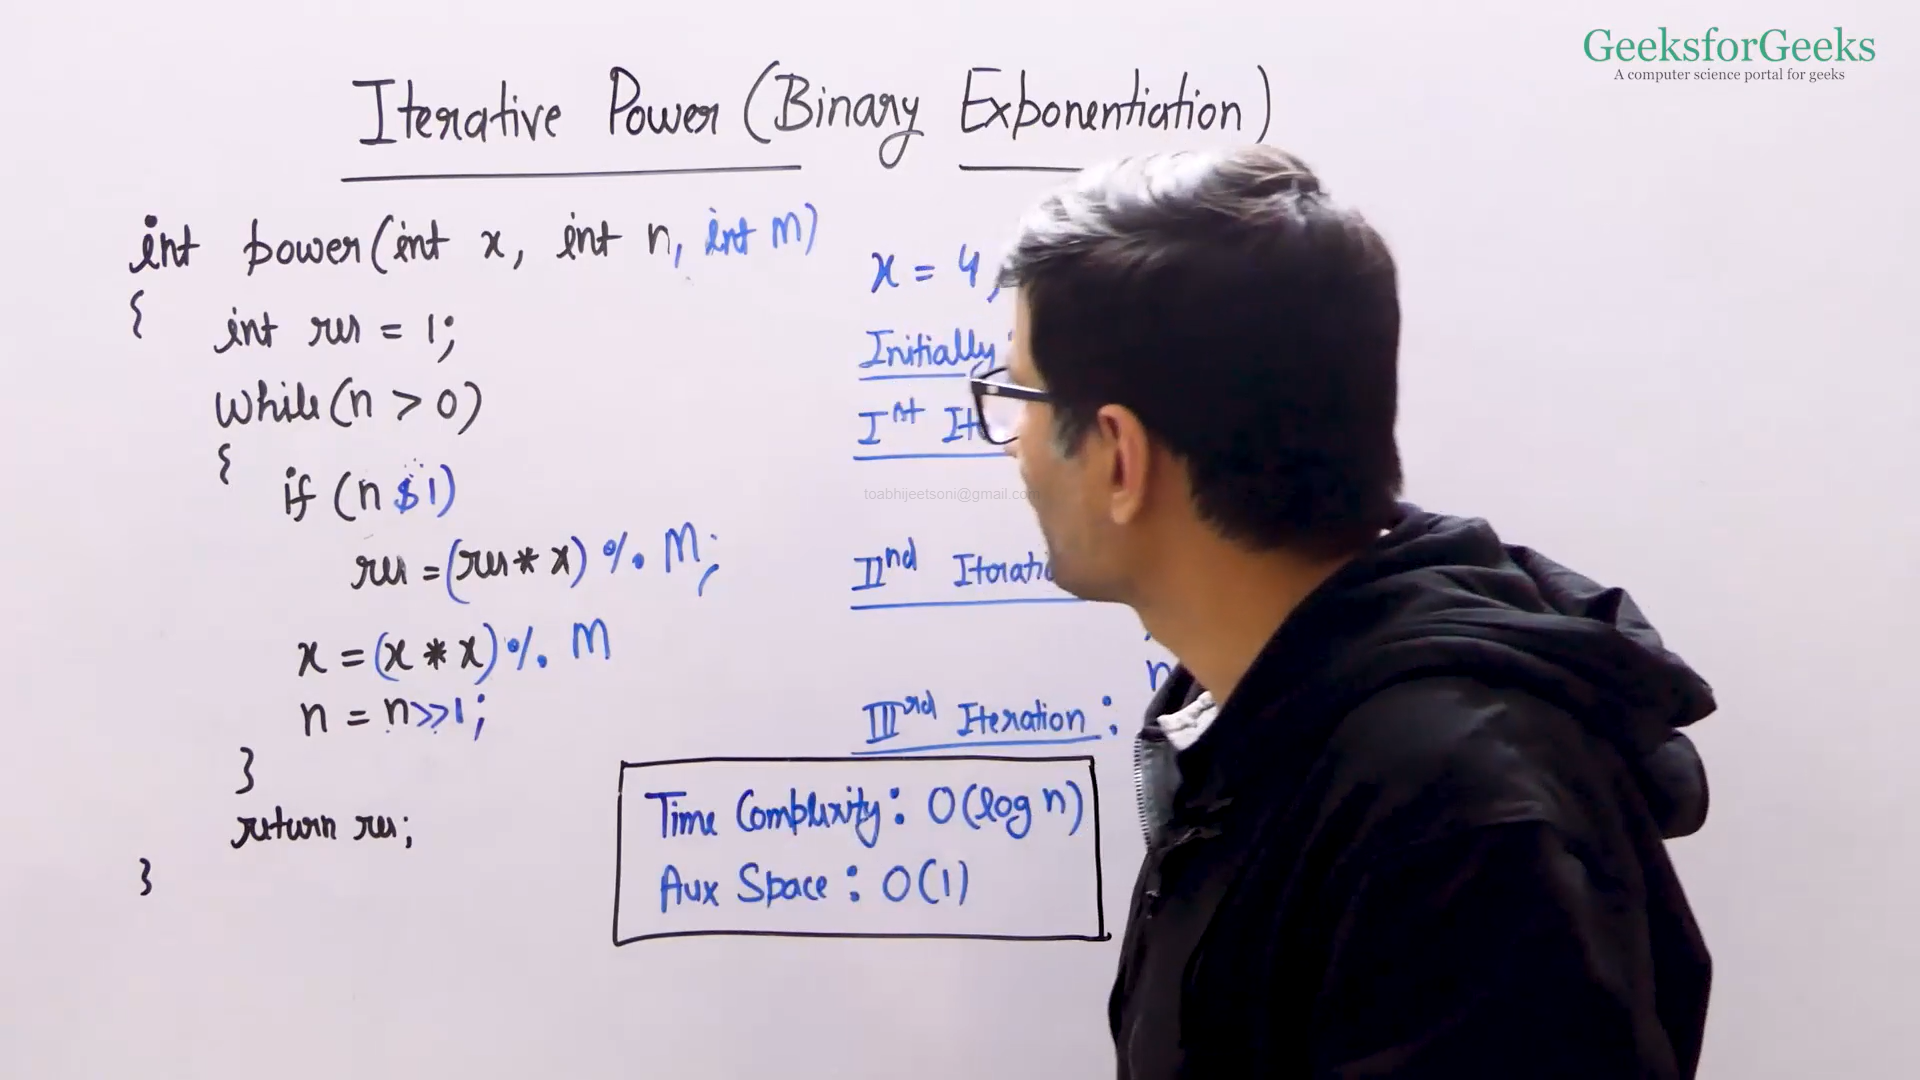 GeeksforGeeks
A computer science portal for geeks
Iterative Power (Binary Exponentiation)
int power(int x, int n, int M)
{
int res = 1;
while(n > 0)
{
if (n & 1)
res = (res * x) % M;
x = (x * x) % M
n = n >> 1;
}
return res;
}
x = 4,
Initially
Ist
toabhijeetsoni@gmail.com
IInd
n
IIIrd Iteration :
Time Complexity : O(log n)
Aux Space : O(1)